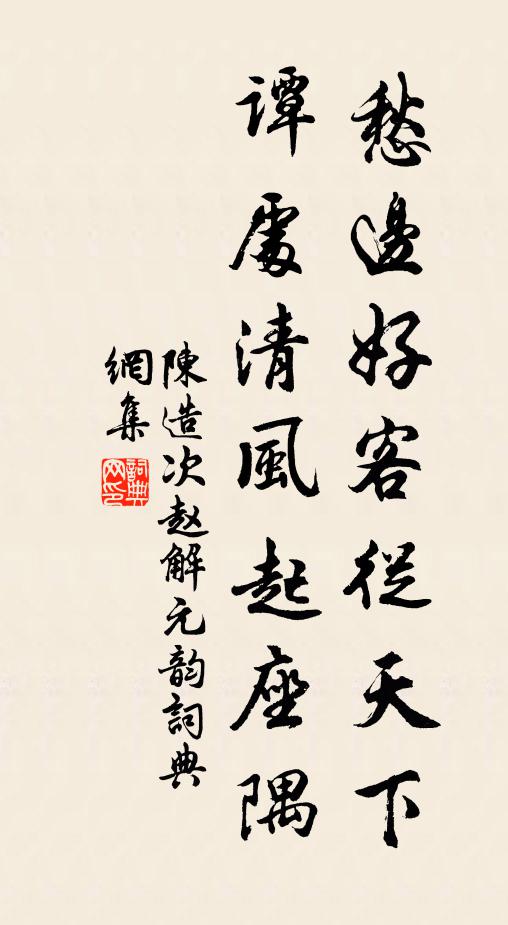 愁邊好客從天下
譚處清風起座隅
陳造次赵解元韵詞典
網集
詞典網印